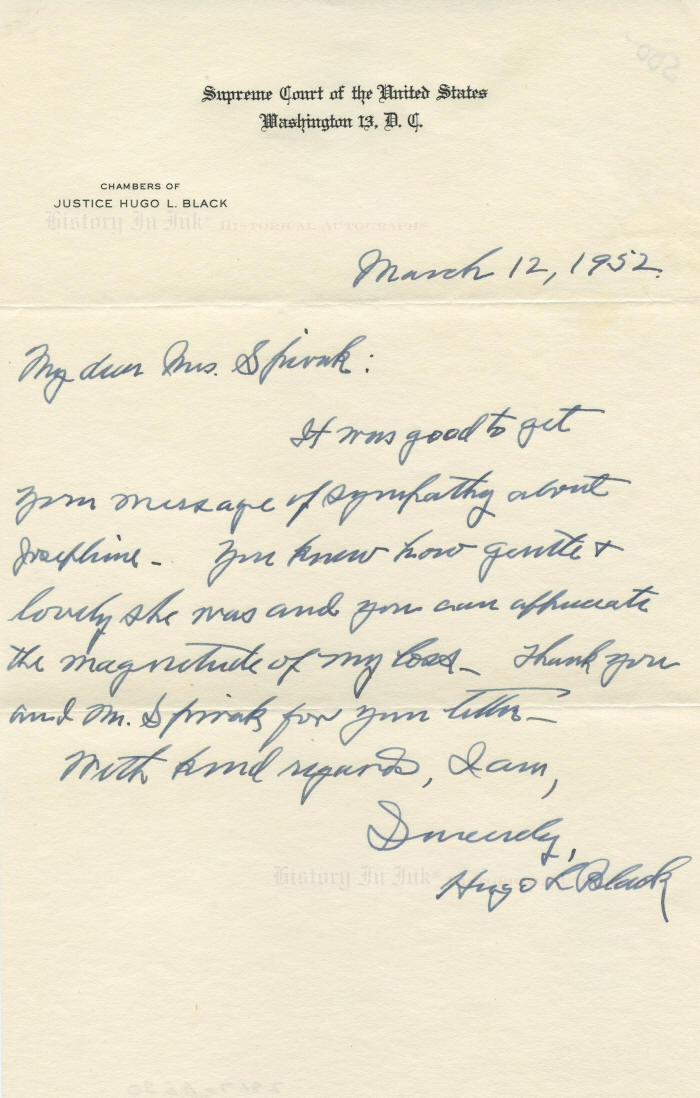 Supreme Court of the United States
Washington 13, D. C.
CHAMBERS OF
JUSTICE HUGO L. BLACK
History In Ink® HISTORICAL AUTOGRAPHS
March 12, 1952.
My dear Mrs. Spivak:
It was good to get
your message of sympathy about
Josephine - You know how gentle +
lovely she was and you can appreciate
the magnitude of my loss - Thank you
and Mr. Spivak for your letter -
With kind regards, I am,
Sincerely,
History In Ink®
Hugo L Black